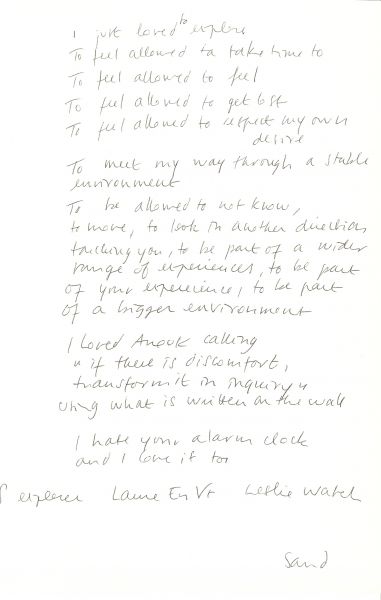 I just loved to explore
To feel allowed to take time to
To feel allowed to feel
To feel allowed to get lost
To feel allowed to respect my own
desire
To meet my way through a stable
environment
To be allowed to not know,
to move, to look in another direction
touching you, to be part of a wider
range of experiences, to be part
of your experience, to be part
of a bigger environment
I loved Anouk calling
" if there is discomfort,
transform it in inquiry "
using what is written on the wall
I hate your alarm clock
and I love it too
explorer Laure En Vt Leslie watch
Sand